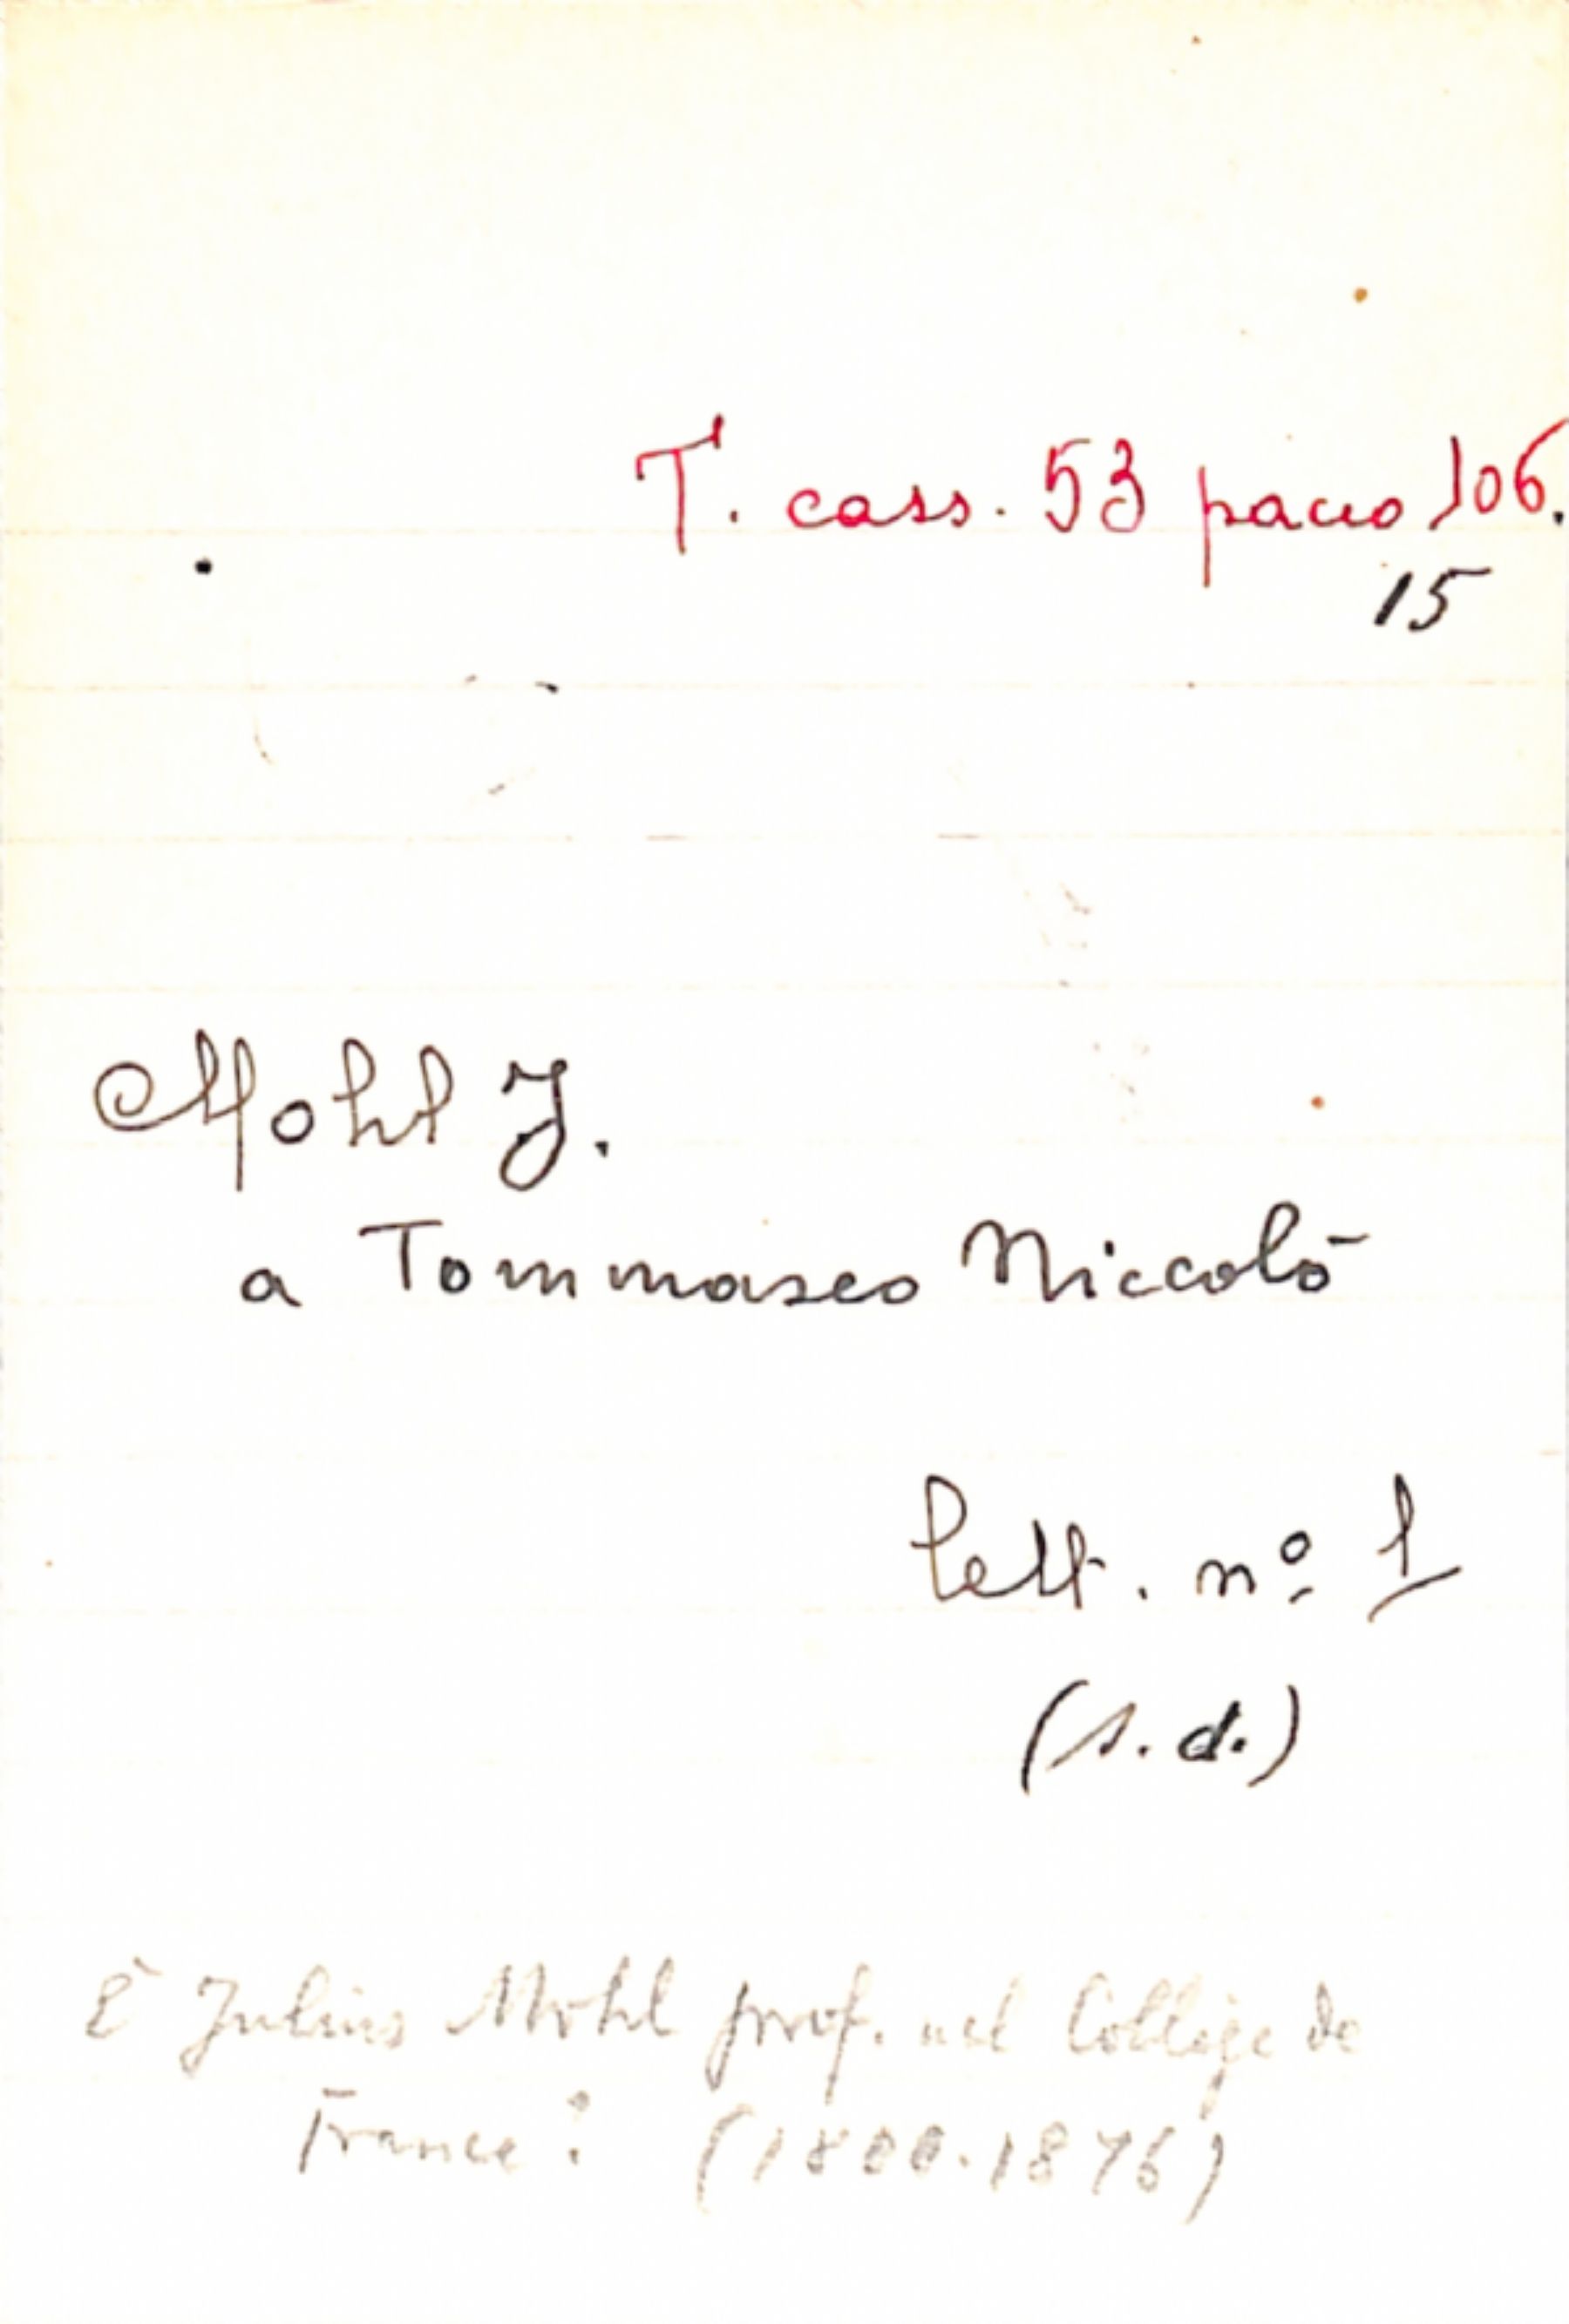 T. cass. 53 pacco 106.
15
Mohl J.
a Tommaseo Niccolò
lett. nº 1
(s. d.)
È Julius Mohl prof. nel Collège de
France? (1800-1876)